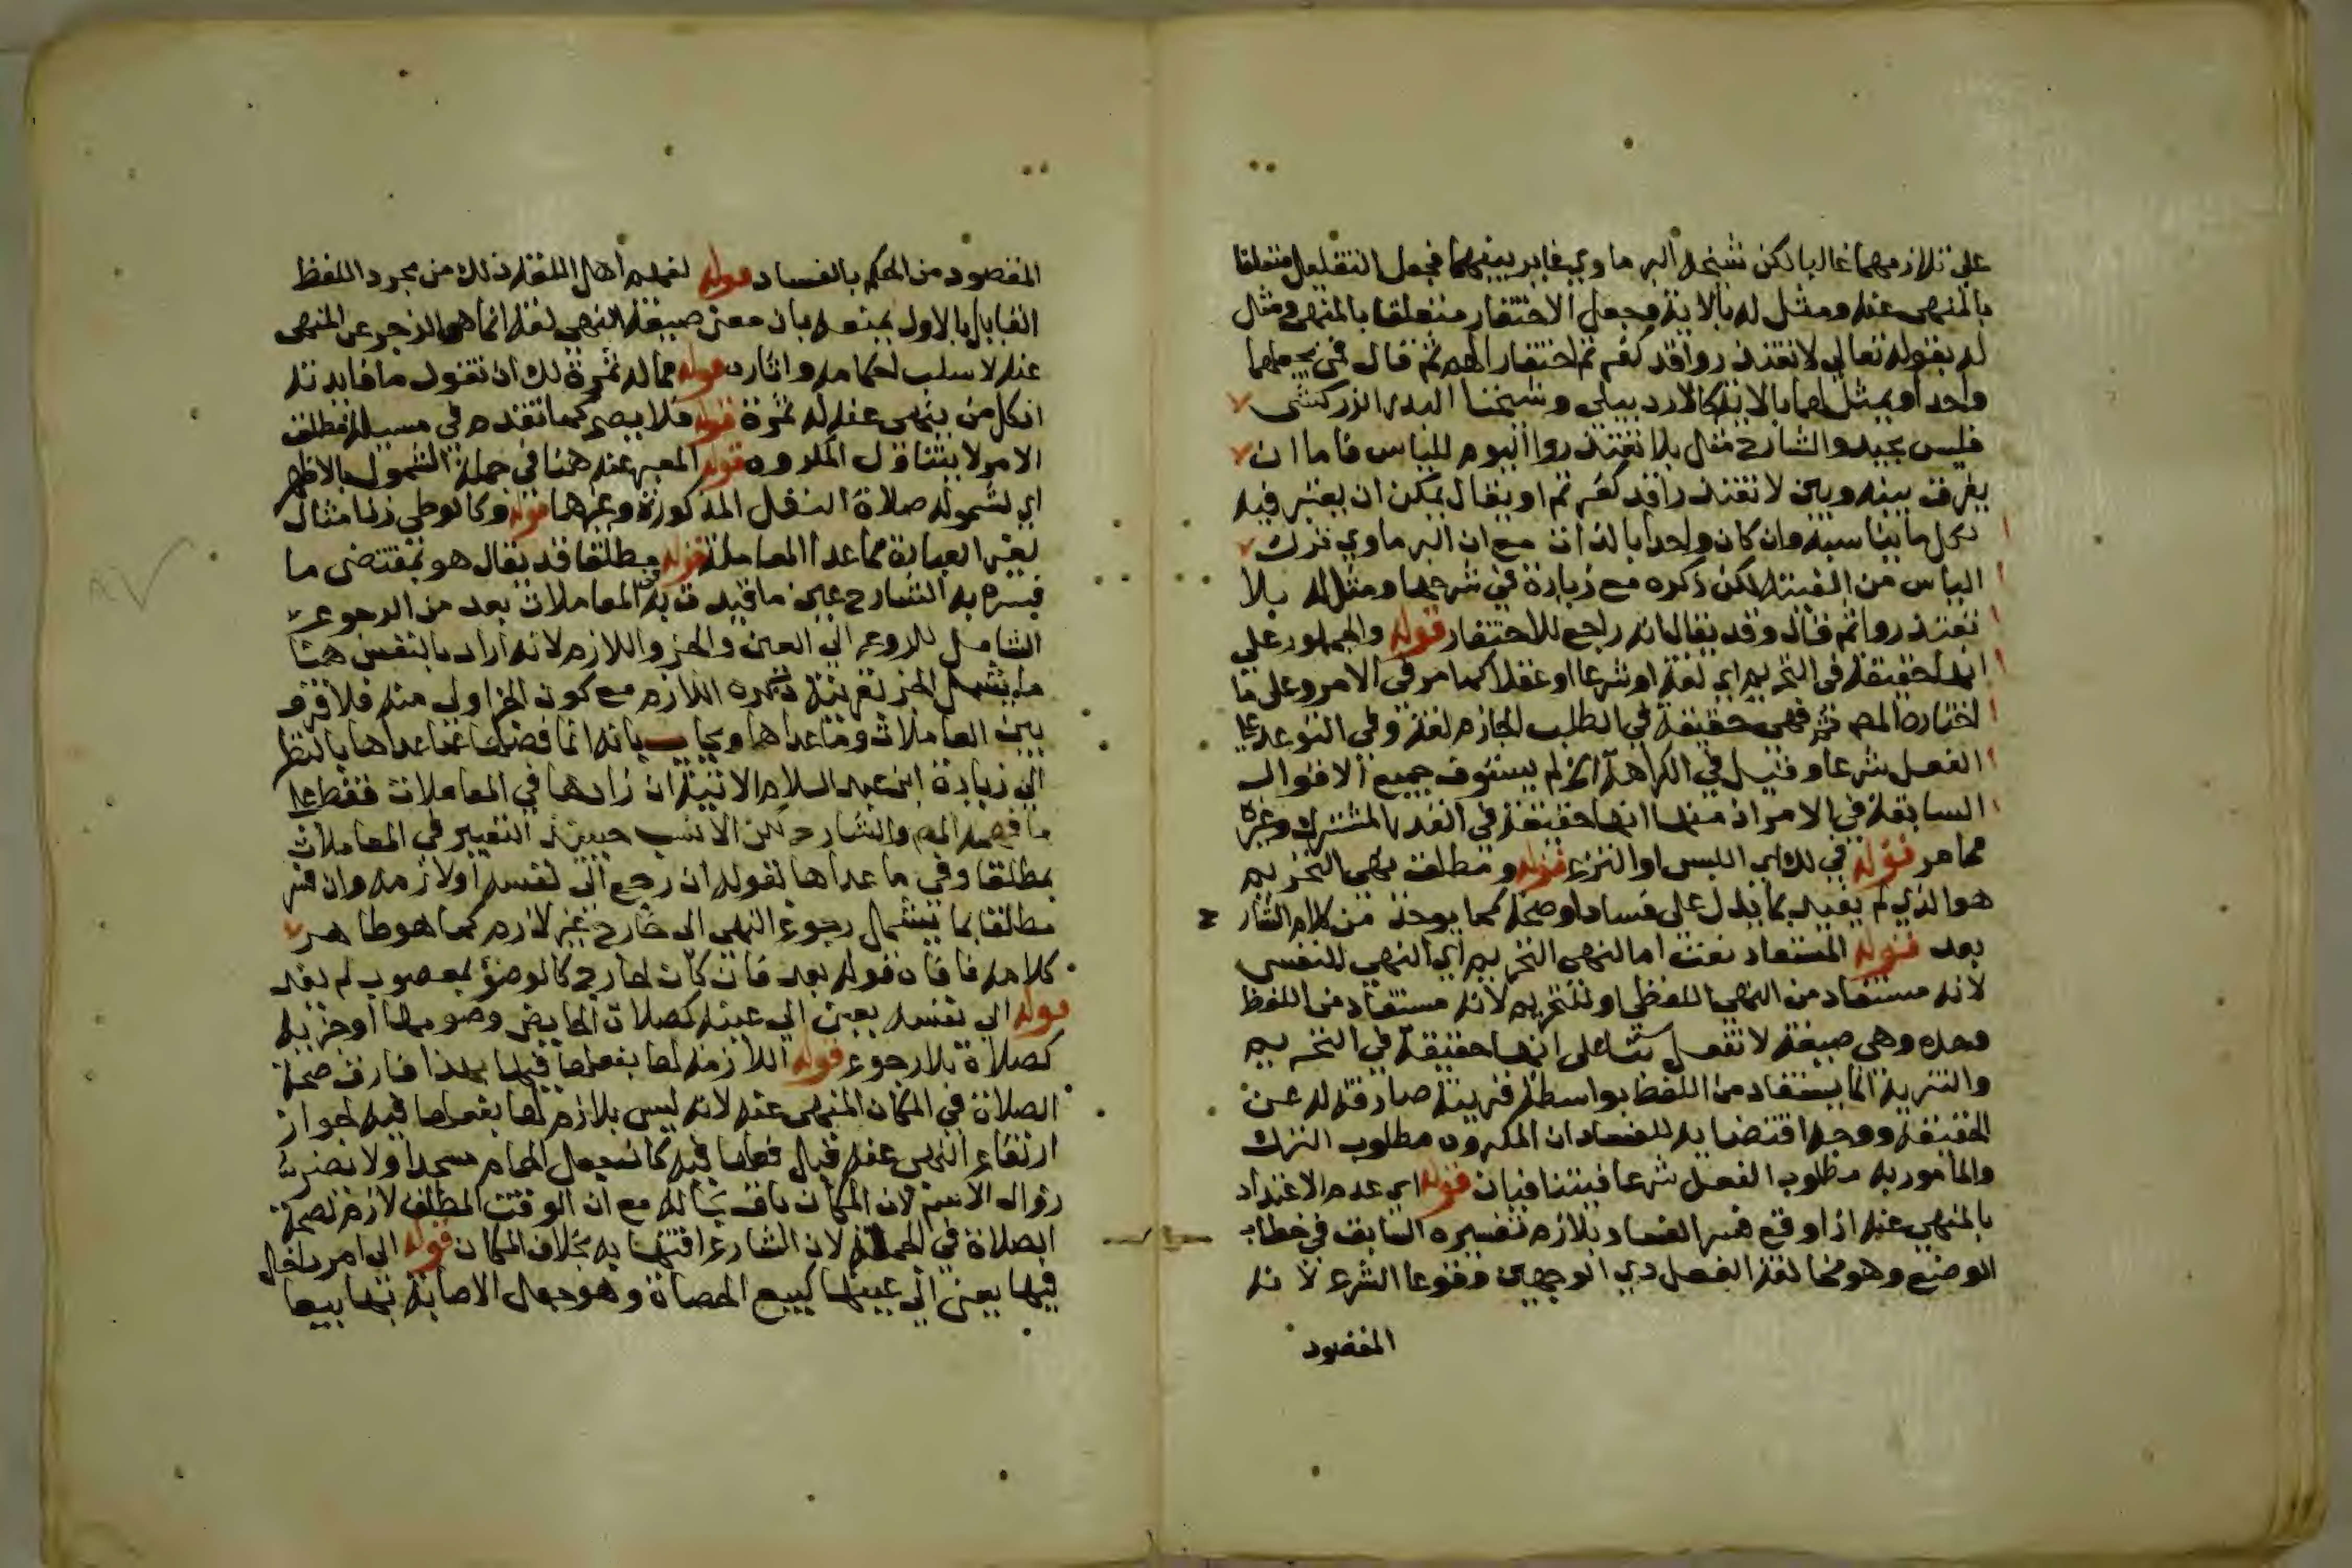 على تلازمهما غالبا لكن شيخه البرماوي غاير بينهما فجعل التقليل متعلقا
بالمنهي عنه ومثل له بالاية وجعل الاحتقار متعلقا بالمنهي ومثل
له بقوله تعالى لا تعتذروا قد كفرتم احتقارا لهم ثم قال فمن يجعلهما
واحدا ويمثل لهما بالاية كالاردبيلي وشيخنا البدر الزركشي
فليس بجيد والشارح مثل بلا تعتذروا اليوم للياس فاما ان
يفرق بينه وبين لا تعتذروا قد كفرتم او يقال يمكن ان يعتبر فيه
كل ما يناسبه وان كان واحدا بالذات مع ان البرماوي ترك
الياس من الفيته لكن ذكره مع زيادة في شرحها ومثل له بلا
تعتذروا ثم قال وقد يقال انه راجع للاحتقار قوله والجمهور على
انها حقيقة في التحريم اي لغة او شرعا او عقلا كما مر في الامر وعلى ما
اختاره المص ثم فهي حقيقة في الطلب الجازم لغة وفي التوعد على
الفعل شرعا وقيل في الكراهة الخ لم يستوف جميع الاقوال
السابقة في الامر اذ منها انها حقيقة في القدر المشترك وغيره
مما مر قوله في ذلك اي اللبس او النزع قوله ومطلق نهي التحريم
هو الذي لم يقيد بما يدل على فساد او صحة كما يوخذ من كلام الشار
ح
بعد قوله المستفاد نعت اما لنهي التحريم اي النهي النفسي
لانه مستفاد من النهي اللفظي او للتحريم لانه مستفاد من اللفظ
وحده وهي صيغة لا تفعل بناء على انها حقيقة في التحريم
والتنزيه انما يستفاد من اللفظ بواسطة قرينة صارفة له عن
الحقيقة ووجه اقتضايه للفساد ان المكروه مطلوب الترك
والمامور به مطلوب الفعل شرعا فيتنافيان قوله اي عدم الاعتداد
بالمنهي عنه اذا وقع فسر الفساد بلازم تفسيره السابق في خطاب
الوضع وهو مخالفة الفعل ذي الوجهين وقوعا الشرع لانه
المقصود
المقصود من الحكم بالفساد قوله لفهم اهل اللغة ذلك من مجرد اللفظ
القايل بالاول يمنعه بان معنى صيغة النهي لغة انما هو الزجر عن المنهي
عنه لا سلب احكامه واثاره قوله مما له ثمرة لك ان تقول ما فايدته
اذ كل من ينهى عنه له ثمرة قوله فلا يصح كما تقدم في مسيلة مطلق
الامر لا يتناول المكروه قوله المعبر عنه هنا في جملة الشمول بالاظهر
اي لشموله صلاة النفل المذكورة وغيرهما قوله وكالوطي زنا مثال
لغير العبادة مما عدا المعاملة قوله مطلقا قد يقال هو بمقتضى ما
فسره به الشارح عين ما قيدت به المعاملات بعد من الرجوع
الشامل للرجوع الى العين والجزء واللازم لانه اراد بالنفس هنا
ما يشمل الجزء بقرينة ذكره اللازم مع كون الجزء اولى منه فلا فرق
بين المعاملات وما عداها ويجاب بانه انما فصلت عما عداها بالنظر
الى زيادة ابن عبد السلام الاتية اذ زادها في المعاملات فقط على
ما فهمه المص والشارح لكن الانسب حينئذ التعبير في المعاملات
بمطلقا وفي ما عداها بقوله ان رجع الى نفسه او لازمه وان فسر
مطلقا بما يشمل رجوع النهي الى خارج غير لازم كما هو ظاهر
كلامه نافاه قوله بعد فان كان لخارج كالوضوء بمغصوب لم يفد
قوله الى نفسه يعني الى عينه كصلاة الحايض وصومها او جزئه
كصلاة بلا ركوع قوله اللازمة لها بفعلها فيها بهذا فارق صحة
الصلاة في المكان المنهي عنه لانه ليس بلازم لها بفعلها فيه لجواز
ارتفاع النهي عنه قبل فعلها فيه كان يجعل الحمام مسجدا ولا يضر
زوال الاسم لان المكان باق بحاله مع ان الوقت المطلق لازم لصحة
الصلاة في الجملة لان الشارع اقتها به بخلاف المكان قوله الى امر داخل
فيها يعني الى عينها كبيع الحصاة وهو جعل الاصابة بها بيعا